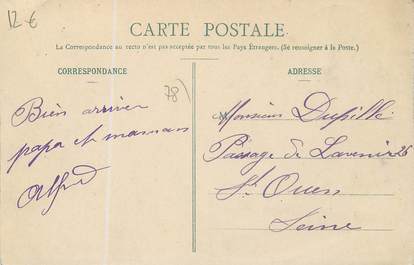 12 €
CARTE POSTALE
La Correspondance au recto n'est pas acceptée par tous les Pays Étrangers. (Se renseigner à la Poste.)
CORRESPONDANCE
ADRESSE
78)
Bien arriver
papa et maman
Alfred
Monsieur Dupille
Passage de Lavenir 26
St Ouen
Seine